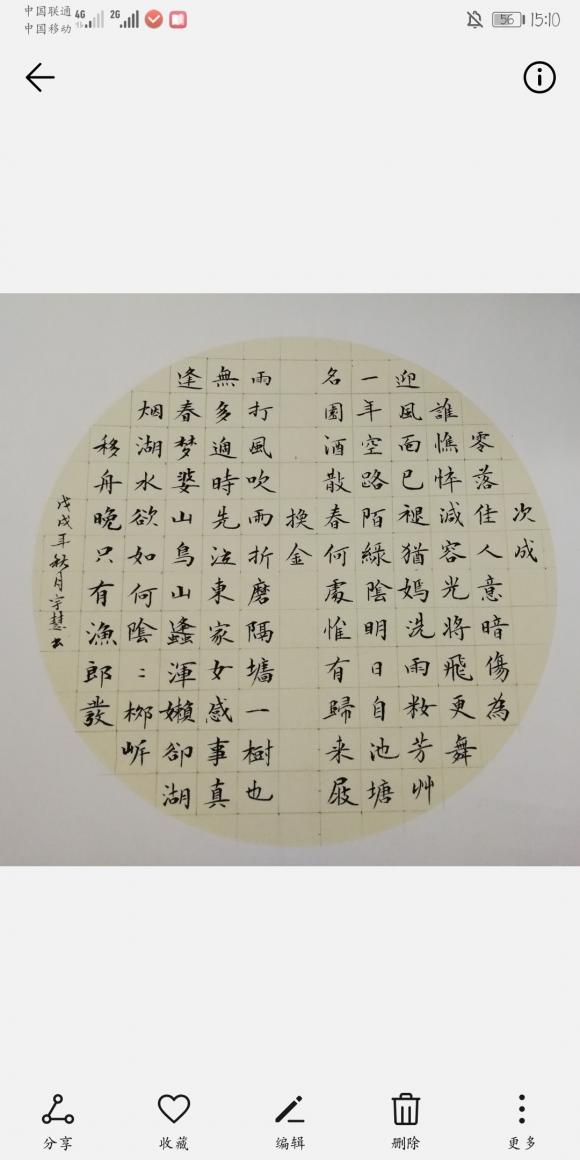 中国联通 4G 2G 56 15:10
中国移动
次成
零落佳人意暗傷為
誰憔悴減容光將飛更舞
迎風面已褪猶嫣洗雨妝芳艸
一年空路陌綠陰明日自池塘
名園酒散春何處惟有歸来屐
換金
雨打風吹雨折磨隔墻一樹也
無多適時先泣東家女感事真
逢春梦婆山鳥山蠭渾嬾卻湖
烟湖水欲如何陰〻桺岍
移舟晚只有漁郎發
戊戌年秋月宇慧书
分享 收藏 编辑 删除 更多